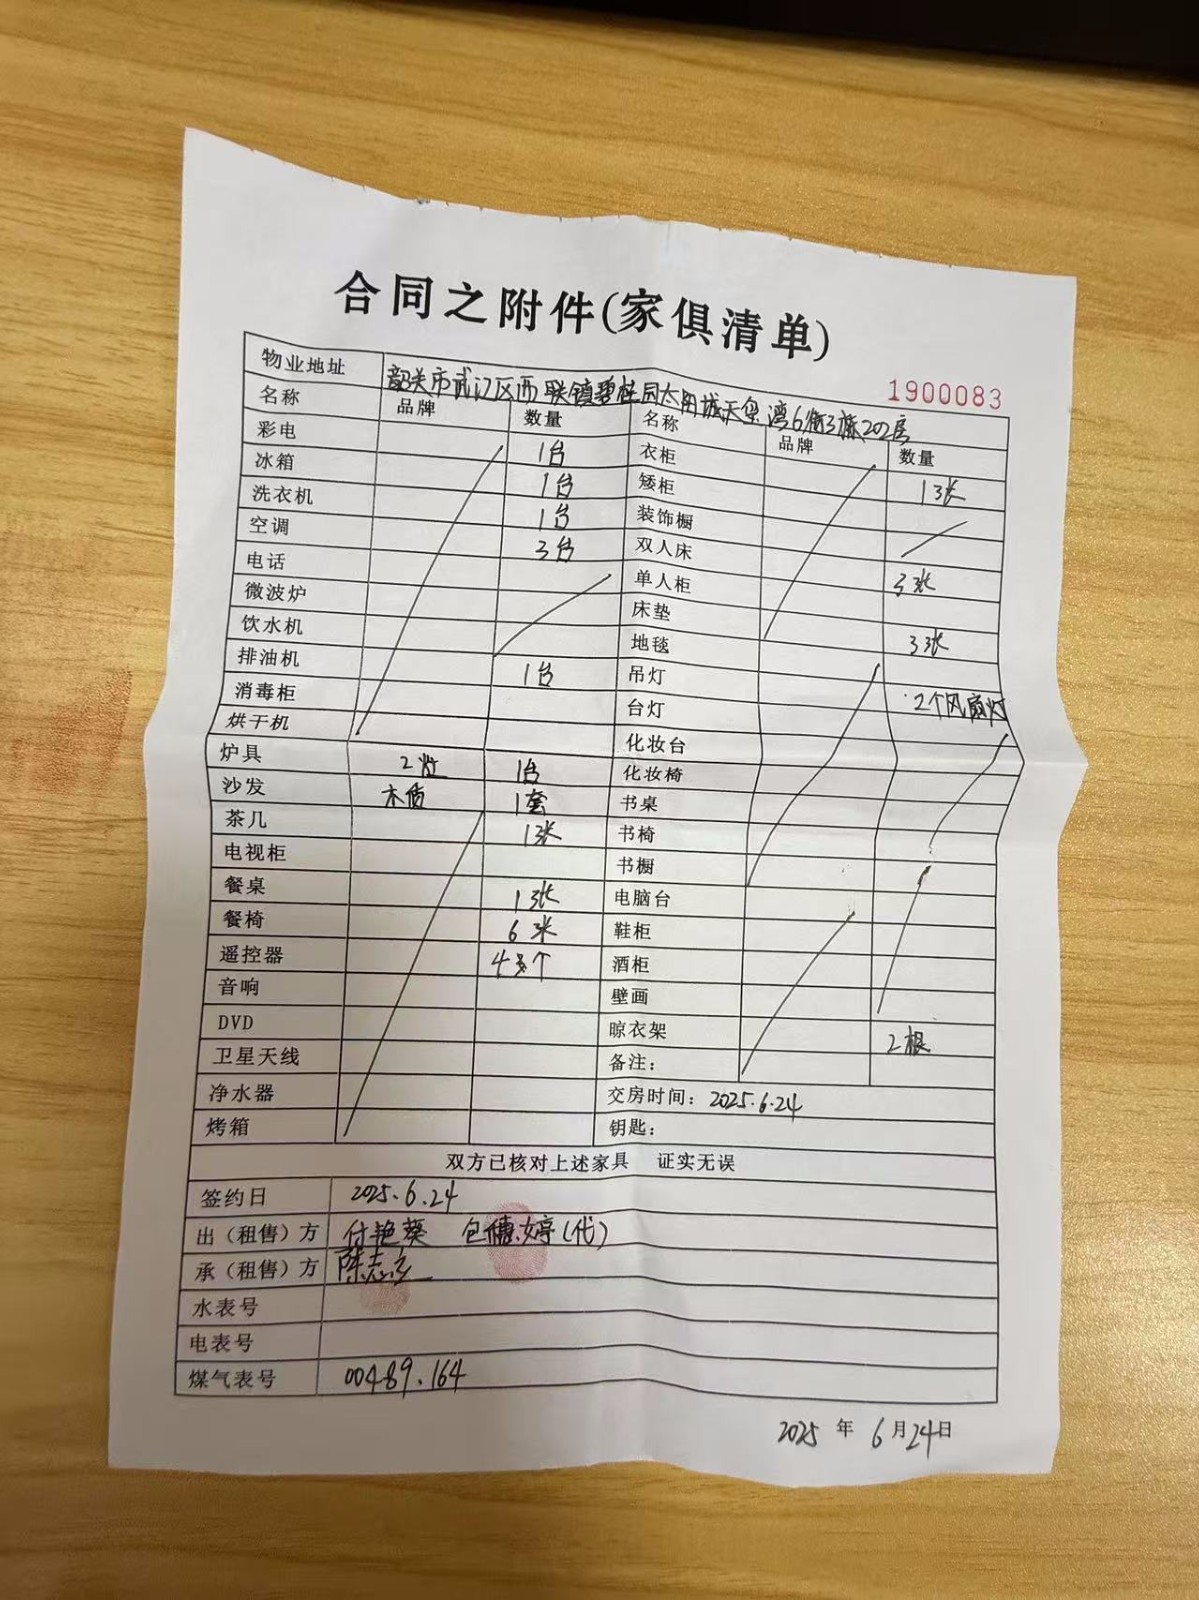 合同之附件(家俱清单)
1900083
物业地址 韶关市武江区西联镇碧桂园太阳城天玺湾6街3栋202房
名称 品牌 数量 名称 品牌 数量
彩电 1台 衣柜 1张
冰箱 1台 矮柜
洗衣机 1台 装饰橱
空调 3台 双人床 3张
电话 单人柜
微波炉 床垫 3张
饮水机 地毯
排油机 1台 吊灯 2个风扇灯
消毒柜 台灯
烘干机 化妆台
炉具 2灶 1台 化妆椅
沙发 木质 1套 书桌
茶几 1张 书椅
电视柜 书橱
餐桌 1张 电脑台
餐椅 6张 鞋柜
遥控器 4个 酒柜
音响 壁画
DVD 晾衣架 2根
卫星天线 备注：
净水器 交房时间：2025.6.24
烤箱 钥匙：
双方已核对上述家具 证实无误
签约日 2025.6.24
出（租售）方 付艳葵 包婷(代)
承（租售）方 陈志
水表号
电表号
煤气表号 00489.164
2025 年 6 月 24 日